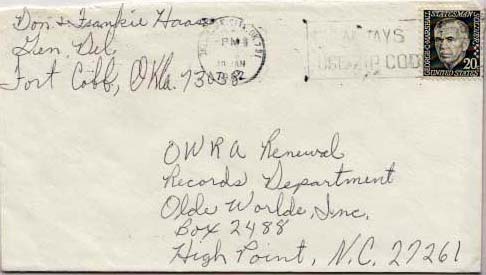 Don & Frankie Haas
Gen. Del.
Fort Cobb, Okla. 73038
PM
JAN
ALWAYS
USE ZIP CODE
STATESMAN
GEORGE C. MARSHALL
SOLDIER
20c
UNITED STATES
OWRA Renewal
Records Department
Olde Worlde, Inc.
Box 2488
High Point, N.C. 27261